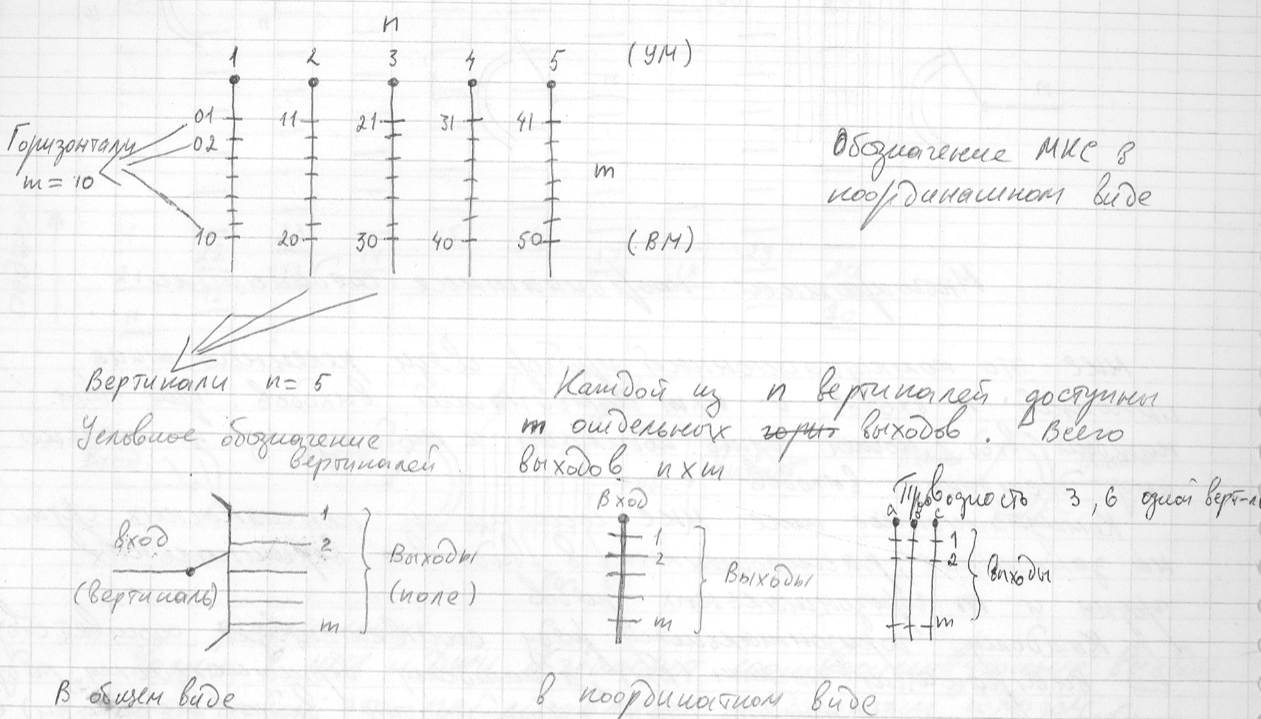 n
1 2 3 4 5 (УМ)
01 11 21 31 41
02
Горизонтали
m = 10
m
Обозначение МКС в
координатном виде
10 20 30 40 50 (ВМ)
Вертикали n = 5
Каждой из n вертикалей доступны
m отдельных гориз выходов. Всего
выходов n x m
Условное обозначение
вертикалей
Вход
Проводность 3, 6 одной верт-ли
a в c
вход
(вертикаль)
1
2
m
Выходы
(поле)
1
2
m
Выходы
1
2
m
Выходы
В общем виде
в координатном виде